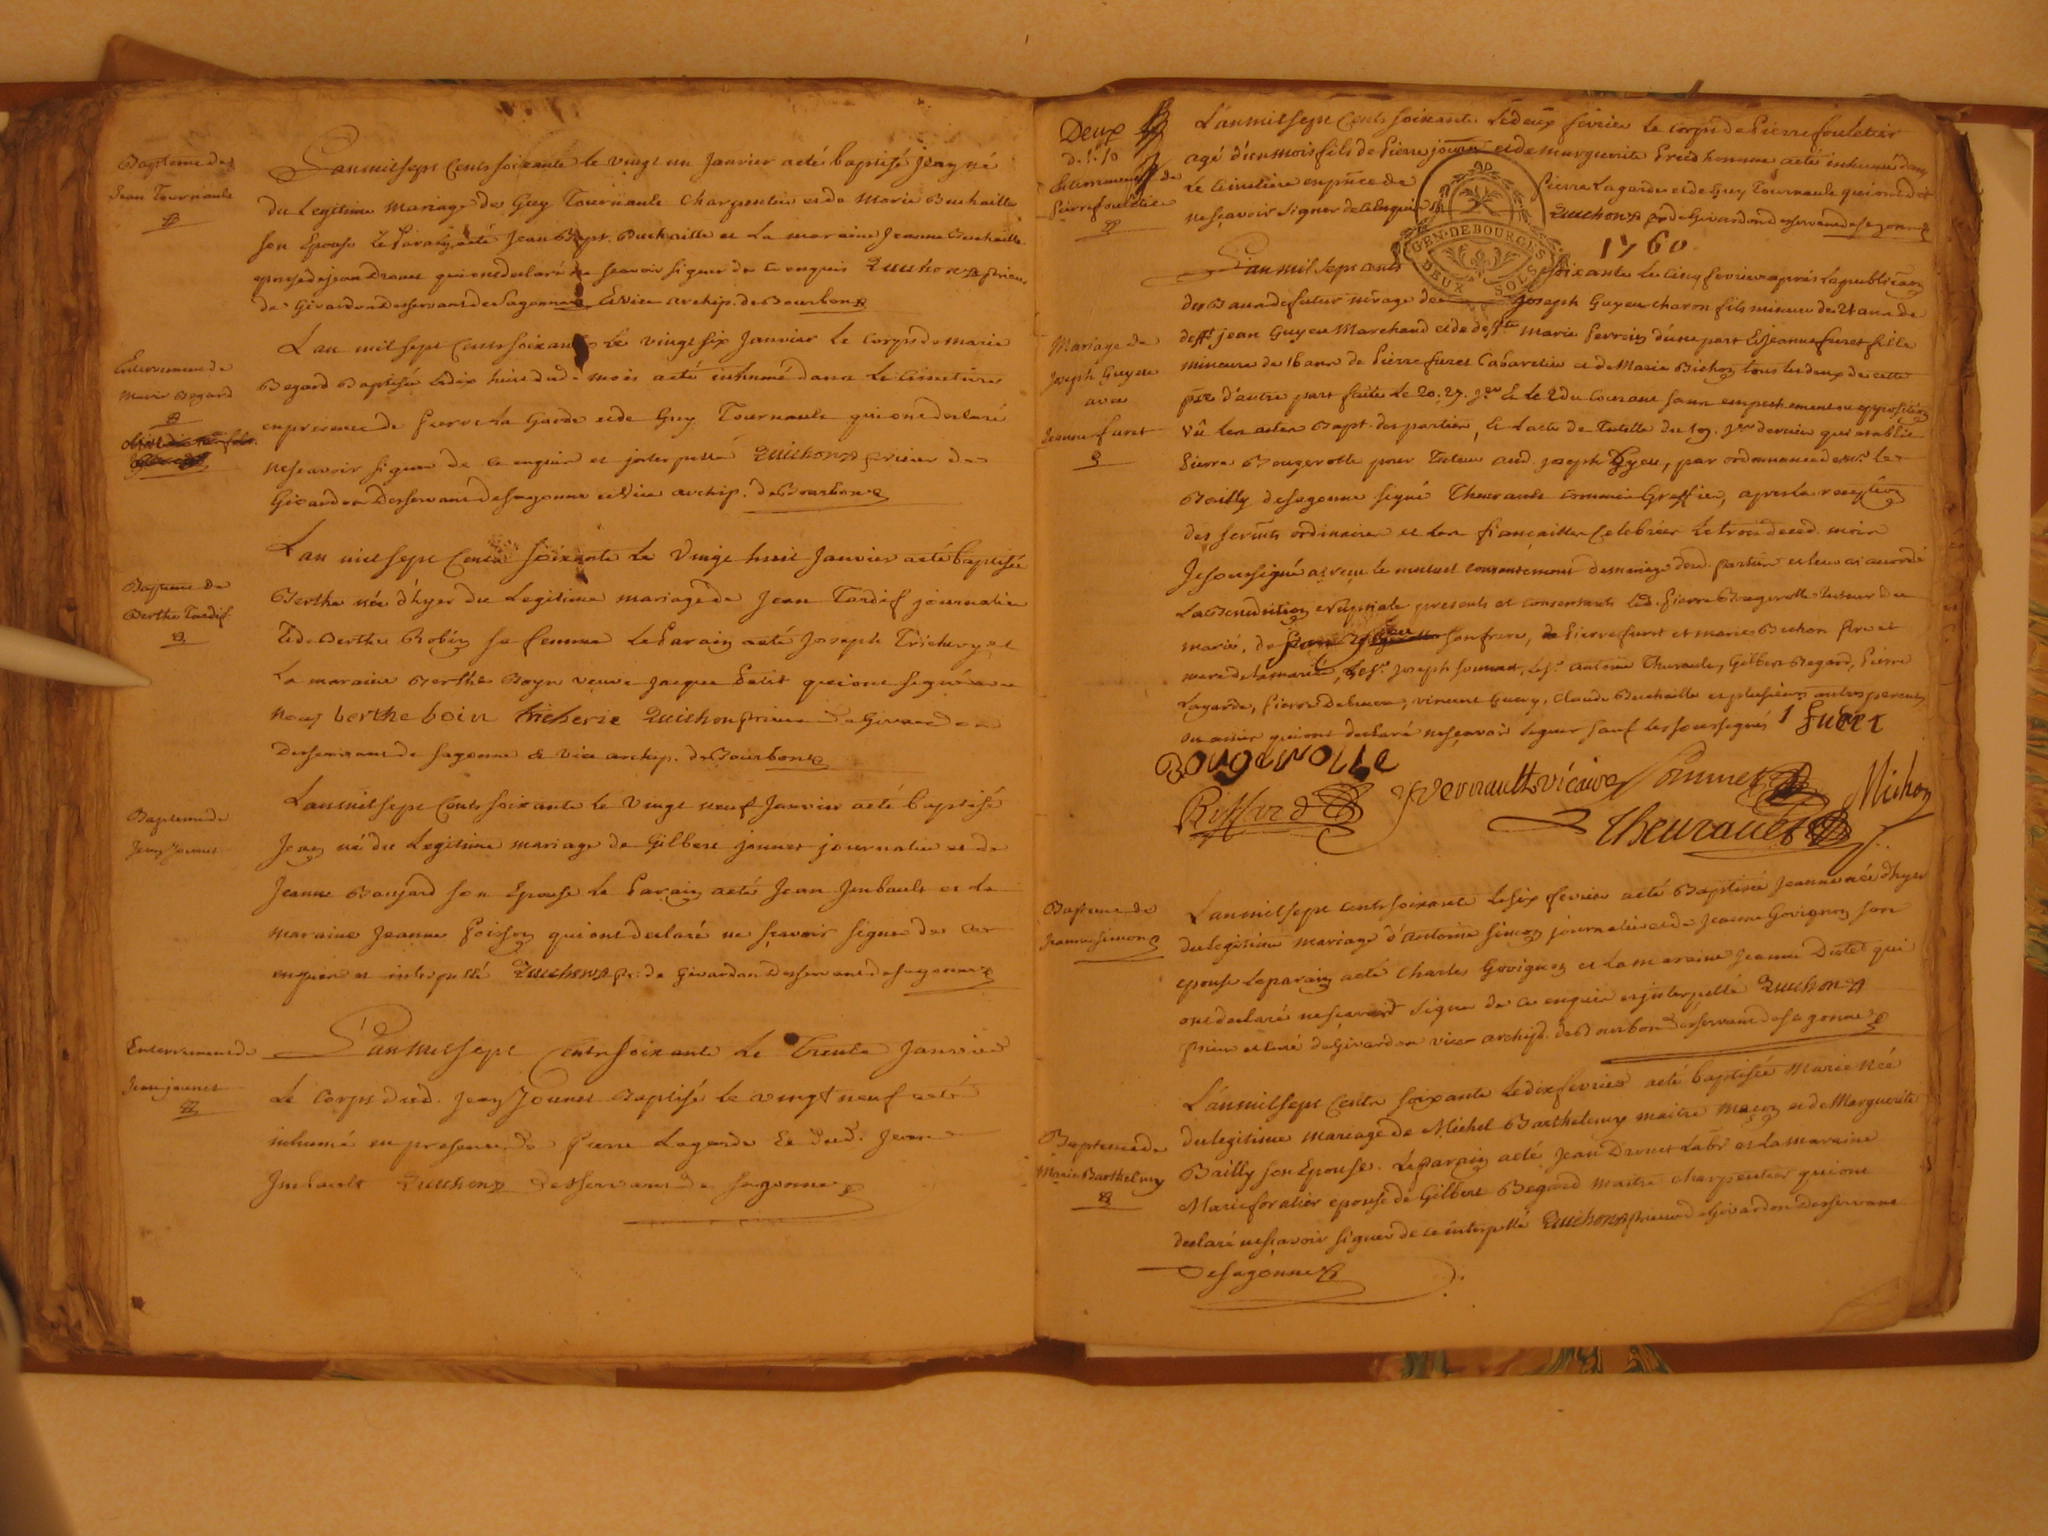 Bapteme de
Jean Tournaulte
L'an mil sept Cents soixante le vingt un Janvier a été baptisé jean né
du Legitime Mariage de Guy Tournault Charpentier et de Marie Buchaille
son Epouse Le Parain a été Jean Bapt. Buchaille et La maraine Jeanne Buchaille
epouse de jean Drouet qui ont declaré ne sçavoir signer de ce enquis Quichon prieur
de Givardon Desservant de Sagonne & Vice archip. de Bourbon
Enterrement de
Marie Begard
L'an mil sept Cents soixante le vingt six Janvier le Corps de marie
Begard Baptisée le dix huit dud. mois a été inhumé dans le Cimetiere
en presence de Pierre La Garde et de Guy Tournault qui ont declaré
ne scavoir signer de ce enquis et interpellé Quichon prieur de
Givardon Desservant de Sagonne et Vice archip. de Bourbon
Bapteme de
Berthe Tardif
L'an mil sept Cents soixante le Vingt huit Janvier a été baptisée
Berthe née d'hyer du Legitime mariage de Jean Tardif journalier
et de Berthe Robin sa femme le Parain a été Joseph Tricherye et
La maraine Berthe Boyn veuve Jacque Petit qui ont signé avec
nous berthe boin tricherie Quichon prieur de Givardon
Desservant de Sagonne & vice archip. de Bourbon
Bapteme de
Jean Jounet
L'an mil sept Cents soixante le Vingt neuf Janvier a été baptisé
Jean né du Legitime mariage de Gilbert jounet journalier et de
Jeanne Baujard son Epouse le Parain a été Jean Imbault et La
maraine Jeanne Poisson qui ont declaré ne sçavoir signer de ce
enquis et interpellé Quichon pr. de Givardon Desservant de Sagonne
Enterrement de
Jean jounet
L'an mil sept Cents soixante le Trente Janvier
Le Corps dud. Jean Jounet Baptisé le vingt neuf a été
inhumé en presence de Pierre Lagarde & dud. Jean
Imbault Quichon desservant de Sagonne
Deux
Enterrement de
Pierre fouletier
L'an mil sept Cents soixante Le deux fevrier le corps de Pierre fouletier
agé d'un mois fils de Pierre et de marguerite Preudhomme a été inhumé dans
Le Cimetiere en pnce de Pierre Lagarde et de Guy Tournault qui ont dt
ne sçavoir signer de ce enquis Quichon pr de Givardon desservant de Sagonne
GEN. DE BOURGES
DEUX SOLS
1760
Mariage de
Joseph Guyeu
avec
Jeanne furet
L'an mil sept cents soixante le cinq fevrier après la publication
des Bans de futur mariage de Joseph Guyeu charon fils mineur de 21 ans de
defft jean Guyeu Marchand et de deffte Marie Perrein d'une part & Jeanne furet fille
mineure de 16 ans de Pierre furet Cabaretier et de Marie Bichon tous les deux de cette
psse d'autre part faite Le 20. 27. jer & le 2 du Courant sans empechement ou opposition
Vû les actes Bapt. des parties, & L'acte de tutelle du 19. jer dernier qui etablit
Pierre Bougerolle pour Tuteur aud. joseph Gyeu, par ordonnance de Mr. le
Bailly de Sagonne signé Theurault commis Greffier, après la reception
des sermts ordinaires et les fiançailles Celebrées Le trois de ced. mois
Je soussigné ai reçu le mutuel consentement de mariage desd. parties et leur ai accordé
La Benediction nuptiale presents et consentants led. Pierre Bougerolle tuteur du
marié, de son frere, de Pierre furet et marie Bichon pere et
mere de la mariée, Le sr. Joseph Soumet, Le sr. Antoine Theurault, Gilbert Begard, Pierre
Lagarde, Pierre vincent Claude Buchaille et plusieurs autres parents
ou amis qui ont declaré ne sçavoir signer sauf les soussignés furet
BOUGEROLLE
vicaire Soumet Michon
Theurault
Bapteme de
Jeanne Simon
L'an mil sept cents soixante le six fevrier a été Baptisée Jeanne née d'hyer
du legitime mariage d'Antoine Simon journalier et de Jeanne Govignon son
epouse le parain a été Charles Govignon et la maraine Jeanne qui
ont declaré ne sçavoir signer de ce enquis et interpellé Quichon
prieur et curé de Givardon vice archip. de Bourbon desservant de Sagonne
Bapteme de
Marie Barthelmy
L'an mil sept Cents soixante le dix fevrier a été baptisée Marie née
du legitime mariage de Michel Barthelemy maitre maçon et de Marguerite
Bailly son Epouse. Le parain a été Jean Drouet Labr et La maraine
Marie foratier epouse de Gilbert Begard maitre charpentier qui ont
declaré ne sçavoir signer de ce interpellé Quichon prieur de Givardon Desservant
de Sagonne